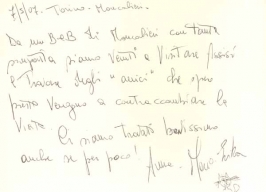 7/5/07. Torino - Moncalieri.
Da un B&B di Moncalieri con tanta
simpatia siamo venuti a visitare Assisi
e trovare degli "amici" che spero
presto vengano a contraccambiare la
visita. Ci siamo trovati benissimo
anche se per poco! Anna - Maria -